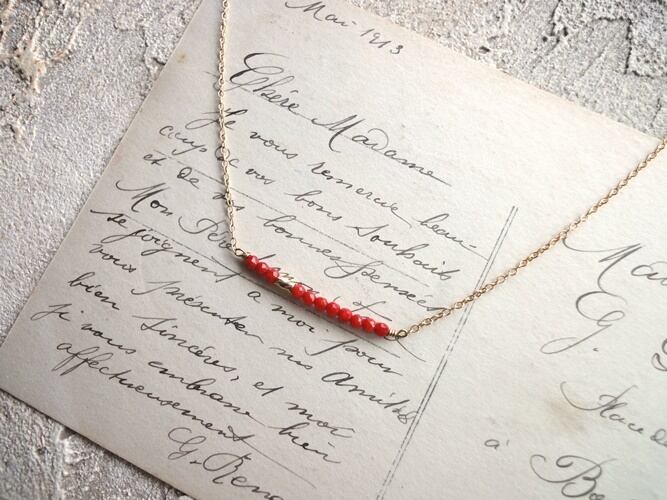 Mai 1913
Chère Madame
Je vous remercie beau-
coup de vos bons souhaits
et de vos bonnes pensées
Mon Père et
se joignent à moi pour
vous présenter nos amitiés
bien sincères, et moi
je vous embrasse bien
affectueusement
G. Rena
Mada
G.
à B